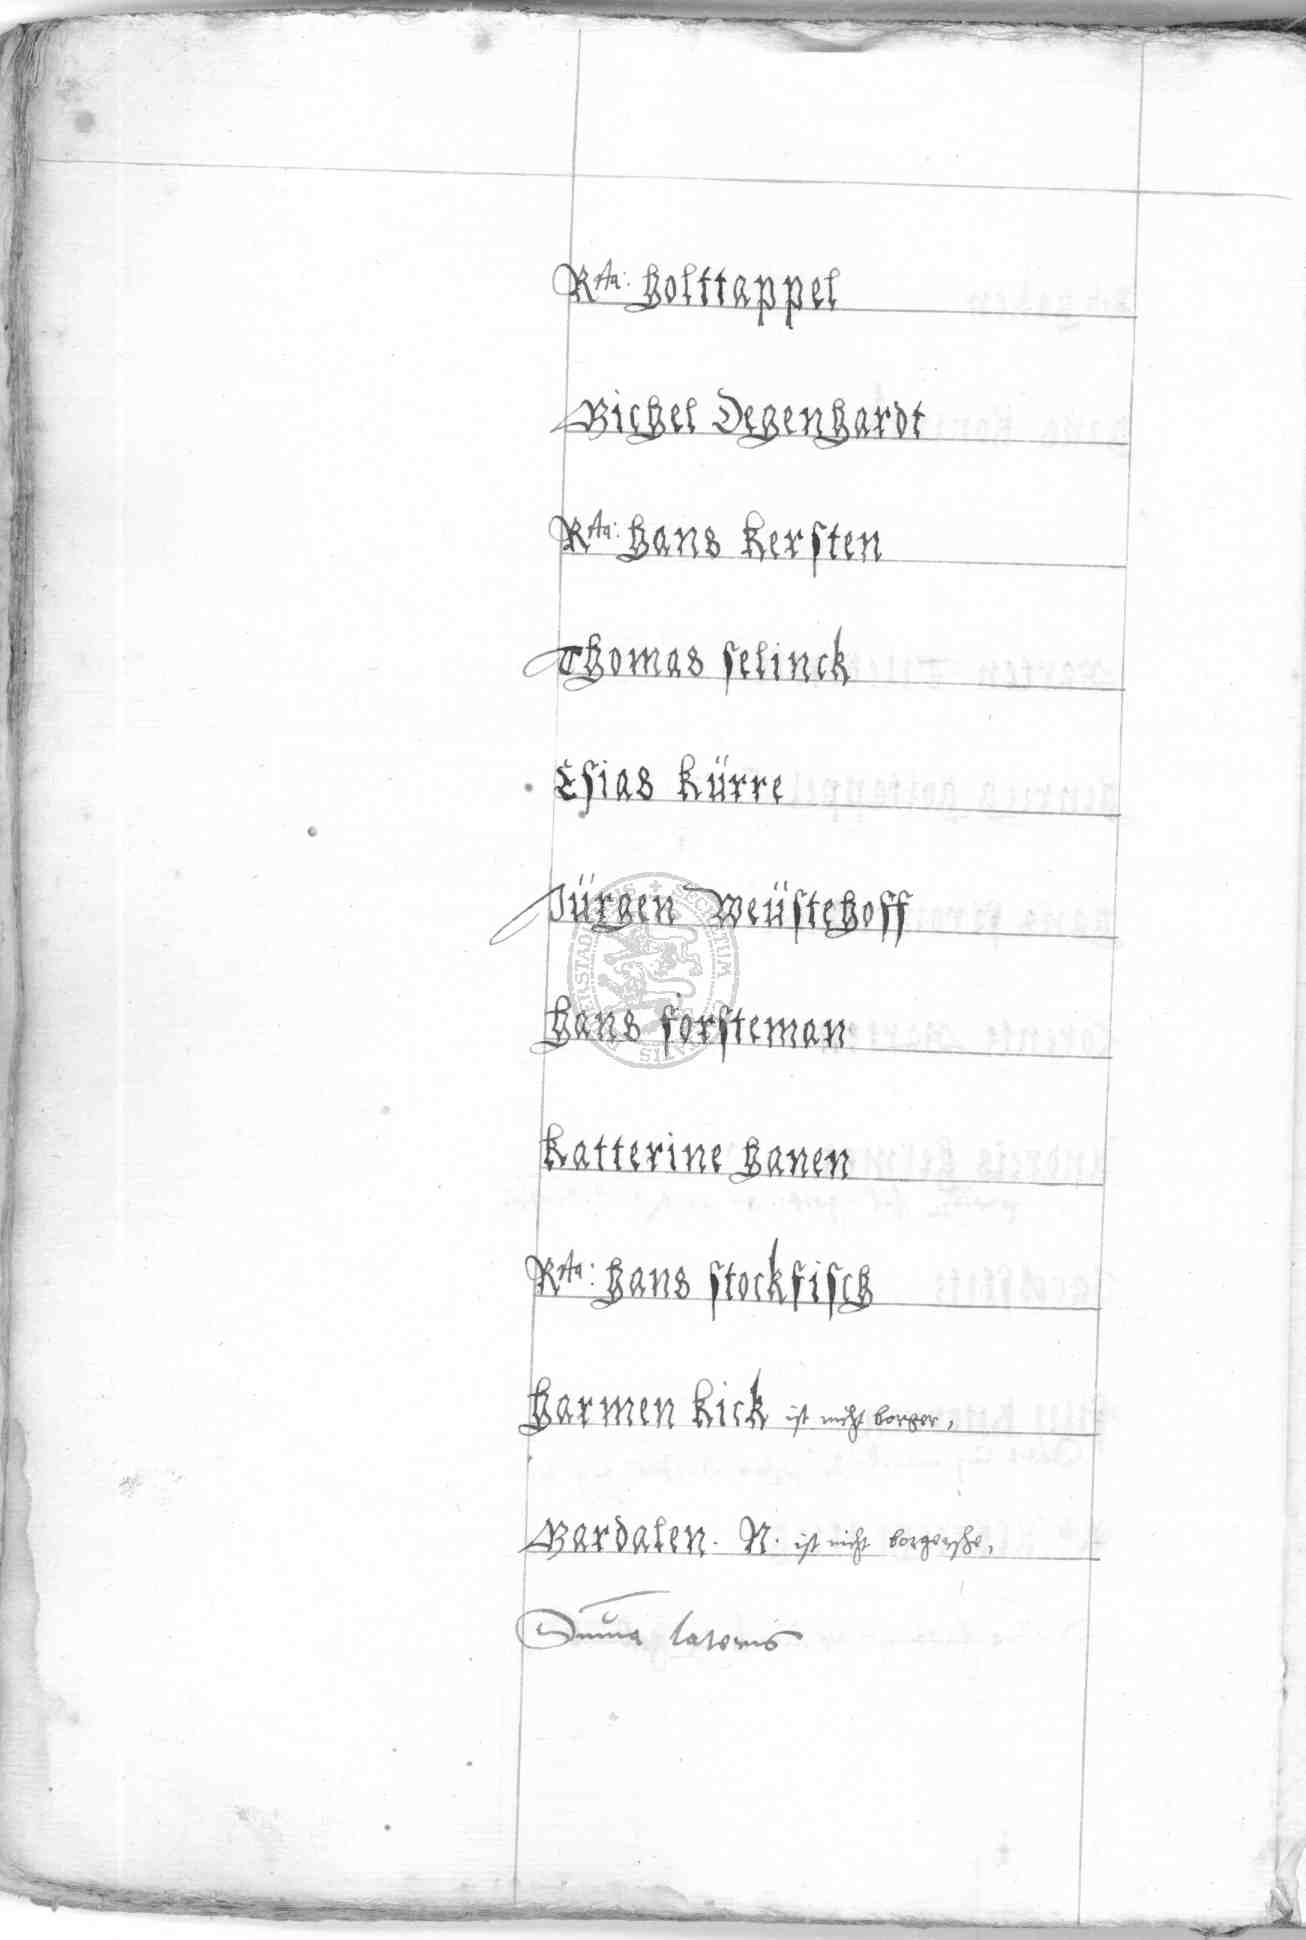 Rta: Holttappel
Michel Degenhardt
Rta: Hans Kersten
Thomas selinck
Esias Kürre
Jürgen Weüstehoff
Hans forsteman
Katterine Hanen
Rta: Hans stockfisch
Harmen Kick ist nicht borger,
Mardalen. N. ist nicht borgersche,
Suma lateris